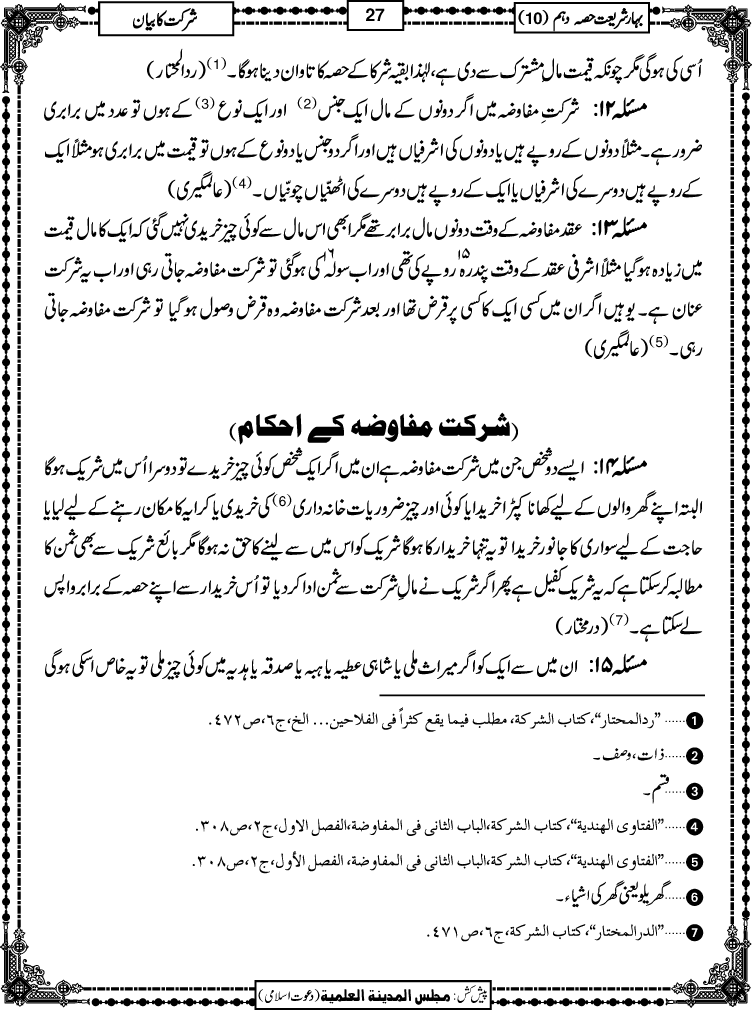 بہار شریعت حصہ دہم (10)
27
شرکت کا بیان
اُسی کی ہوگی مگر چونکہ قیمت مالِ مشترک سے دی ہے، لہٰذا بقیہ شرکا کے حصہ کا تاوان دینا ہوگا۔ (1) (ردالمحتار)
مسئلہ ۱۲: شرکتِ مفاوضہ میں اگر دونوں کے مال ایک جنس (2) اور ایک نوع (3) کے ہوں تو عدد میں برابری
ضرور ہے۔ مثلاً دونوں کے روپے ہیں یا دونوں کی اشرفیاں ہیں اور اگر دو جنس یا دو نوع کے ہوں تو قیمت میں برابری ہو مثلاً ایک
کے روپے ہیں دوسرے کی اشرفیاں یا ایک کے روپے ہیں دوسرے کی اٹھنّیاں چونّیاں۔ (4) (عالمگیری)
مسئلہ ۱۳: عقد مفاوضہ کے وقت دونوں مال برابر تھے مگر ابھی اس مال سے کوئی چیز خریدی نہیں گئی کہ ایک کا مال قیمت
میں زیادہ ہوگیا مثلاً اشرفی عقد کے وقت پندرہ۱۵ روپے کی تھی اور اب سولہ۱۶ کی ہوگئی تو شرکت مفاوضہ جاتی رہی اور اب یہ شرکت
عنان ہے۔ یوہیں اگر ان میں کسی ایک کا کسی پر قرض تھا اور بعد شرکت مفاوضہ وہ قرض وصول ہوگیا تو شرکت مفاوضہ جاتی
رہی۔ (5) (عالمگیری)
(شرکت مفاوضہ کے احکام)
مسئلہ ۱۴: ایسے دو شخص جن میں شرکت مفاوضہ ہے ان میں اگر ایک شخص کوئی چیز خریدے تو دوسرا اُس میں شریک ہوگا
البتہ اپنے گھر والوں کے لیے کھانا کپڑا خریدا یا کوئی اور چیز ضروریات خانہ داری (6) کی خریدی یا کرایہ کا مکان رہنے کے لیے لیا یا
حاجت کے لیے سواری کا جانور خریدا تو یہ تنہا خریدار کا ہوگا شریک کو اس میں سے لینے کا حق نہ ہوگا مگر بائع شریک سے بھی ثمن کا
مطالبہ کرسکتا ہے کہ یہ شریک کفیل ہے پھر اگر شریک نے مالِ شرکت سے ثمن ادا کردیا تو اُس خریدار سے اپنے حصہ کے برابر واپس
لے سکتا ہے۔ (7) (درمختار)
مسئلہ ۱۵: ان میں سے ایک کو اگر میراث ملی یا شاہی عطیہ یا ہبہ یا صدقہ یا ہدیہ میں کوئی چیز ملی تو یہ خاص اسکی ہوگی
1 ...... ”ردالمحتار“، کتاب الشرکة، مطلب فیما یقع کثراً فی الفلاحین... الخ، ج۶، ص۴۷۲.
2 ...... ذات، وصف۔
3 ...... قسم۔
4 ...... ”الفتاوی الھندیة“، کتاب الشرکة، الباب الثانی فی المفاوضة، الفصل الاول، ج۲، ص۳۰۸.
5 ...... ”الفتاوی الھندیة“، کتاب الشرکة، الباب الثانی فی المفاوضة، الفصل الأول، ج۲، ص۳۰۸.
6 ...... گھریلو یعنی گھر کی اشیاء۔
7 ...... ”الدرالمختار“، کتاب الشرکة، ج۶، ص۴۷۱.
پیش کش: مجلس المدینة العلمیة (دعوت اسلامی)